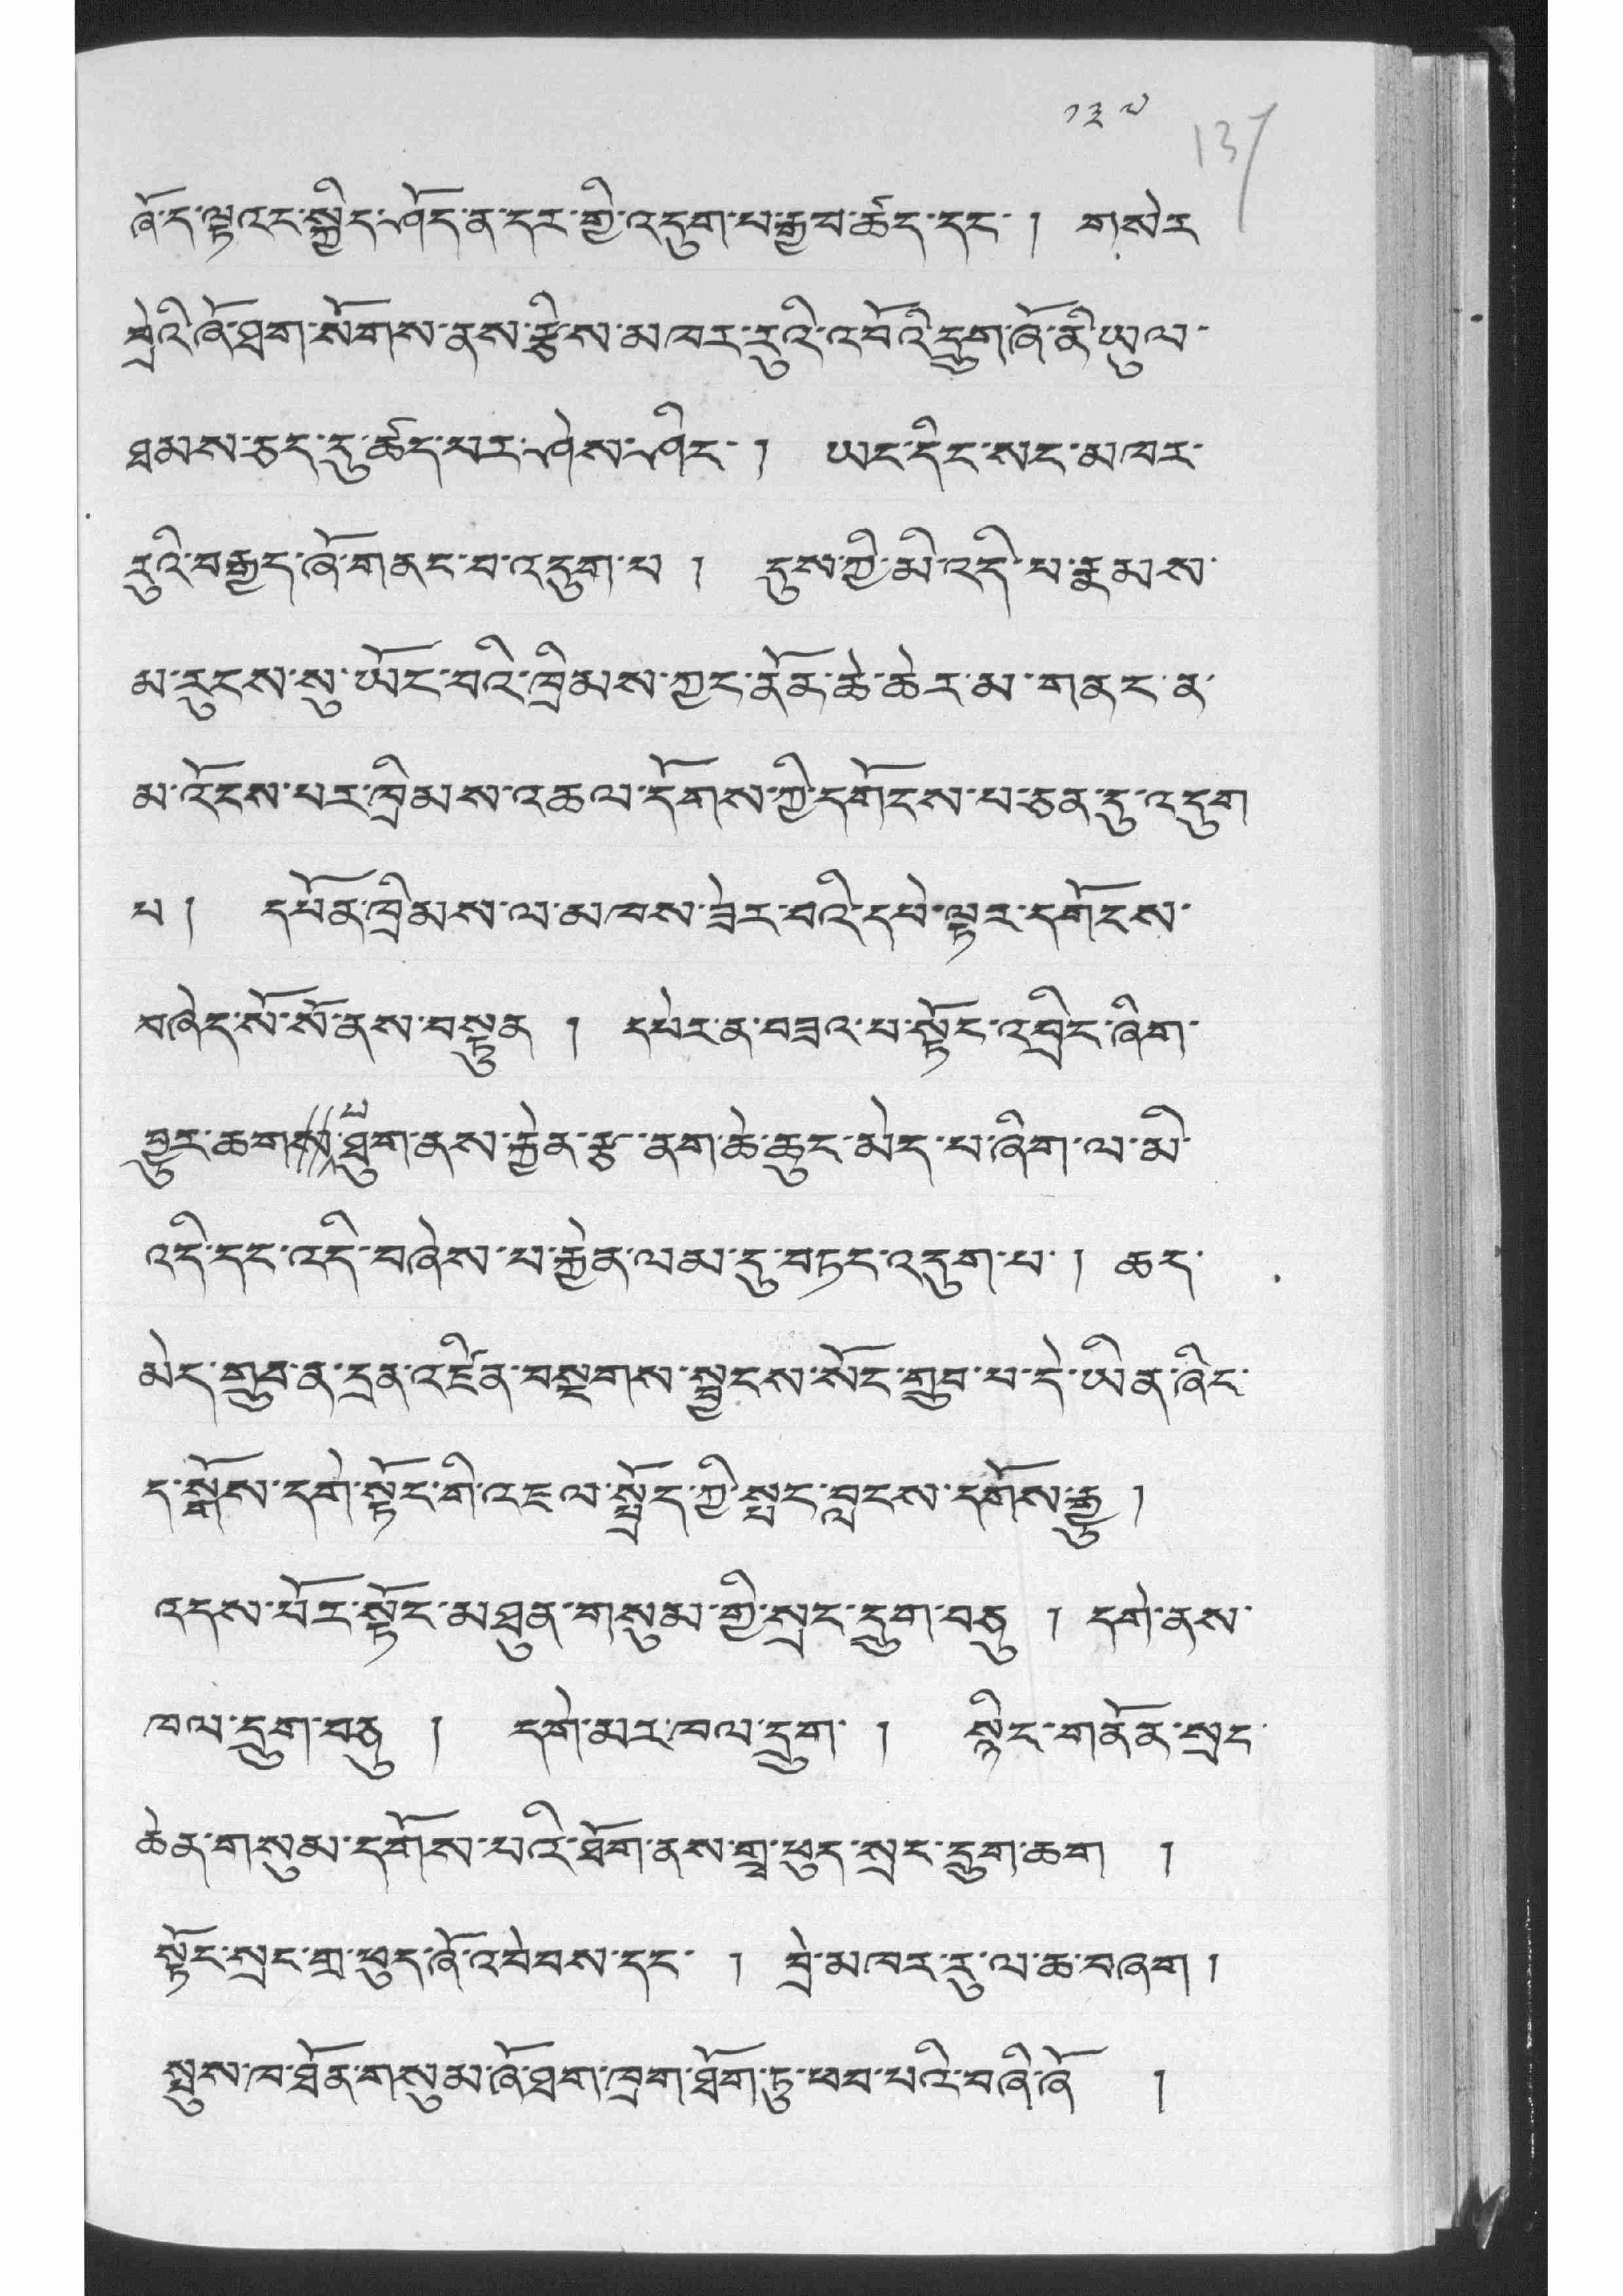 ༡༣༧ 137
ཞོ་ད་ལྟའང་སྐྱིད་ཤོད་ན་དར་གྱི་འདུག་པ་རྒྱབ་ཚོད་དང་། གསེར
བྲེའི་ཞོ་ཐག་སོགས་ནས་རྩིས་མཁར་རུའི་འབོའི་དྲུག་ཞོ་ནི་ཡུལ་
ཐམས་ཅད་དུ་ཚོད་པར་ཤེས་ཤིང་། ཡང་དིང་སང་མཁར་
རུའི་བརྒྱད་ཞོ་གནང་བ་འདུག་པ། དུས་ཀྱི་མི་འདི་པ་རྣམས་
མ་རུངས་སུ་ཡོང་བའི་ཁྲིམས་ཀྱང་ནོན་ཆེ་ཆེར་མ་གནང་ན་
མ་འོངས་པར་ཁྲིམས་འཆལ་དོགས་ཀྱི་དགོངས་པ་ཅན་དུ་འདུག
པ། དཔོན་ཁྲིམས་ལ་མཁས་ཟེར་བའི་དཔེ་ལྟར་དགོངས་
བཞེད་སོ་སོ་ནས་བསྟུན། དཔེར་ན་བཟའ་པ་སྟོང་འབྲིང་ཞིག་
ཟུར་ཆགས་ཐུག་ནས་རྐྱེན་རྩ་ནག་ཆེ་ཆུང་མེད་པ་ཞིག་ལ་མི་
འདི་དང་འདི་བཞེས་པ་རྐྱེན་ལམ་དུ་བཏང་འདུག་པ། ཆད་
མེད་གྲུབ་ན་དྲན་འཛིན་བསྔགས་སྦྱངས་སོང་གྲུབ་པ་དེ་ཡིན་ཞིང་
ད་སྒོས་དགེ་སྟོང་གི་འཇལ་སྤྲོད་ཀྱི་སྤང་བླངས་དགོས་རྒྱུ།
འདས་པོར་སྟོང་མཐུན་གསུམ་གྱི་སྲང་དྲུག་བཅུ། དགེ་ནས་
ཁལ་དྲུག་བཅུ། དགེ་མར་ཁལ་དྲུག། སྙིང་གནོན་སྲང་
ཆེན་གསུམ་དགོས་པའི་ཐོག་ནས་གྲྭ་ཕུད་སྲང་དྲུག་ཆག།
སྟོང་སྲང་གྲ་ཕུད་ཞོ་འབེབས་དང་། བྲེ་མཁར་རུ་ལ་ཆ་བཞག།
སྤུས་ཁ་ཐོན་གསུམ་ཞོ་ཐག་ཁྲག་ཐོག་ཏུ་ཕབ་པའི་བཞི་ཞོ།